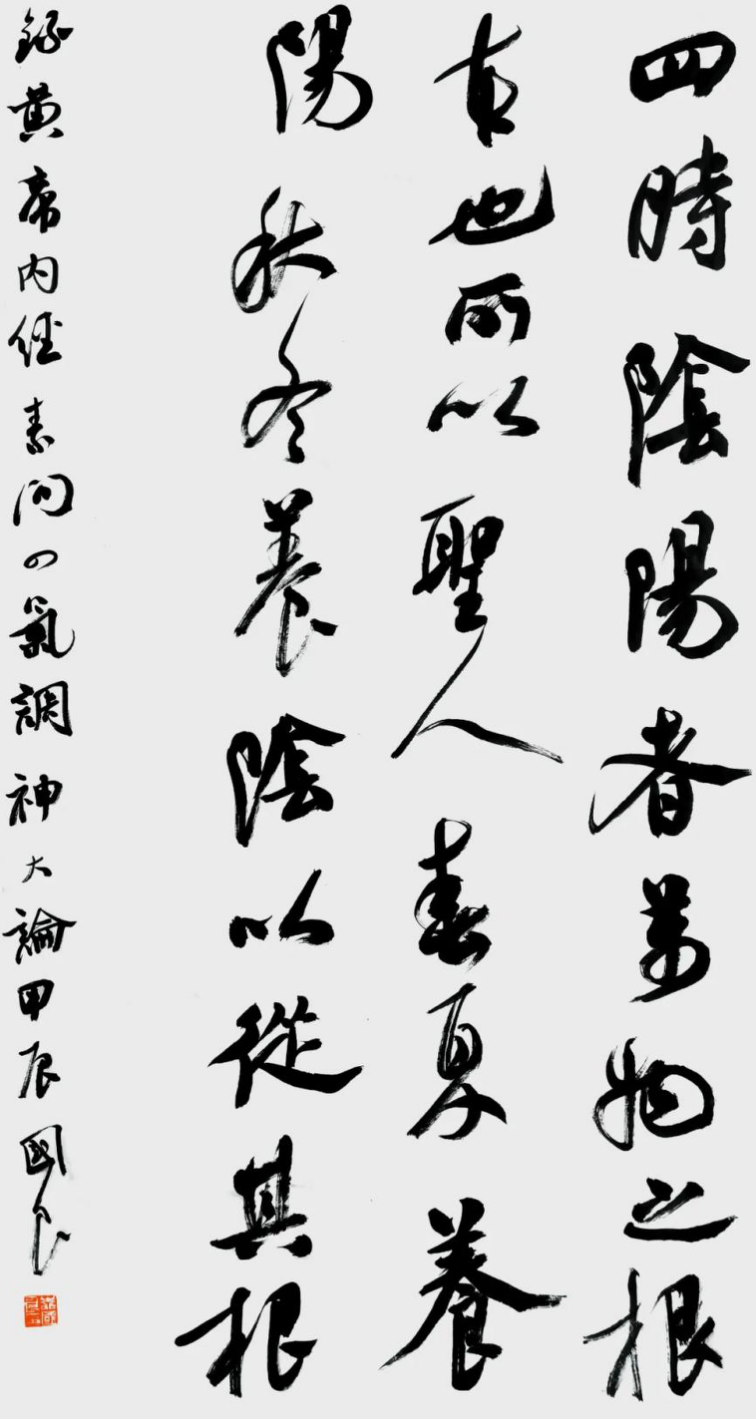 四時陰陽者萬物之根
本也所以聖人春夏養
陽秋冬養陰以從其根
錄黃帝內經素問四氣調神大論甲辰國良